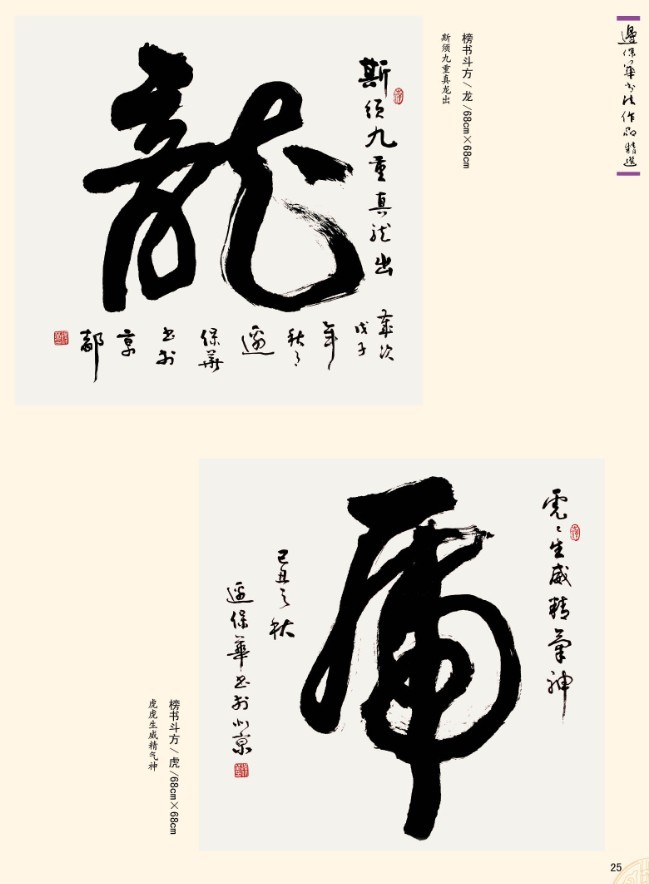 邊保華书法作品精選
榜书斗方 / 龙 /68cm×68cm
斯须九重真龙出
龍
斯须九重真龙出
歲次
戊子
年
秋月
邊
保華
书於
京
都
虎
虎虎生威精氣神
己丑之秋
邊保華书於北京
榜书斗方 / 虎 /68cm×68cm
虎虎生威精气神
25